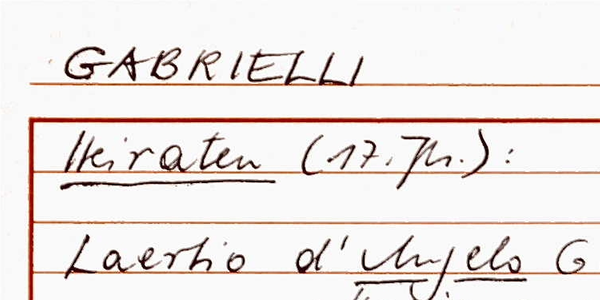 GABRIELLI
Heiraten (17. Jh.):
Laertio d'Angelo G